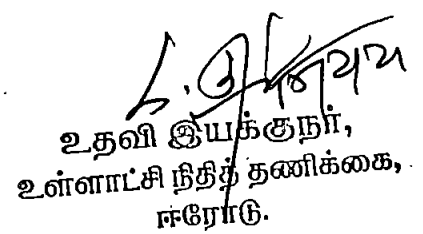 உதவி இயக்குநர்,
உள்ளாட்சி நிதித் தணிக்கை,
ஈரோடு.